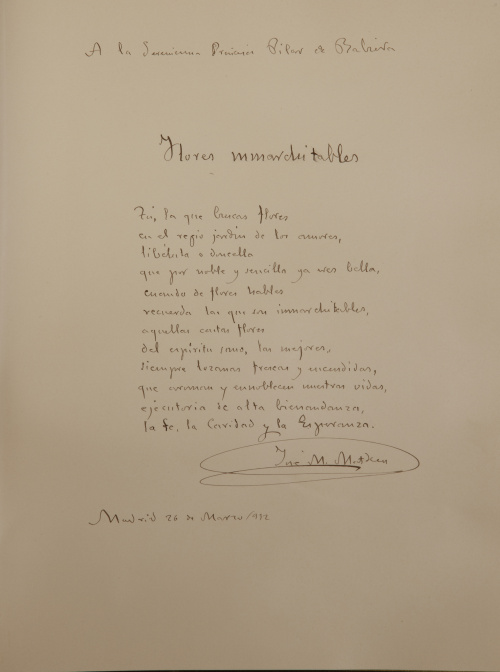 A la Serenisima Princesa Pilar de Babiera
Flores inmarchitables
Tú, la que buscas flores
en el regio jardin de los amores,
o doncella
que por noble y sencilla ya eres bella,
cuando de flores hables
recuerda las que son inmarchitables,
aquellas castas flores
del espíritu sano, las mejores,
siempre lozanas frescas y encendidas,
que aroman y ennoblecen nuestras vidas,
ejecutoria de alta bienandanza,
la fe, la Caridad y la Esperanza.
José M.
Madrid 26 de Marzo/